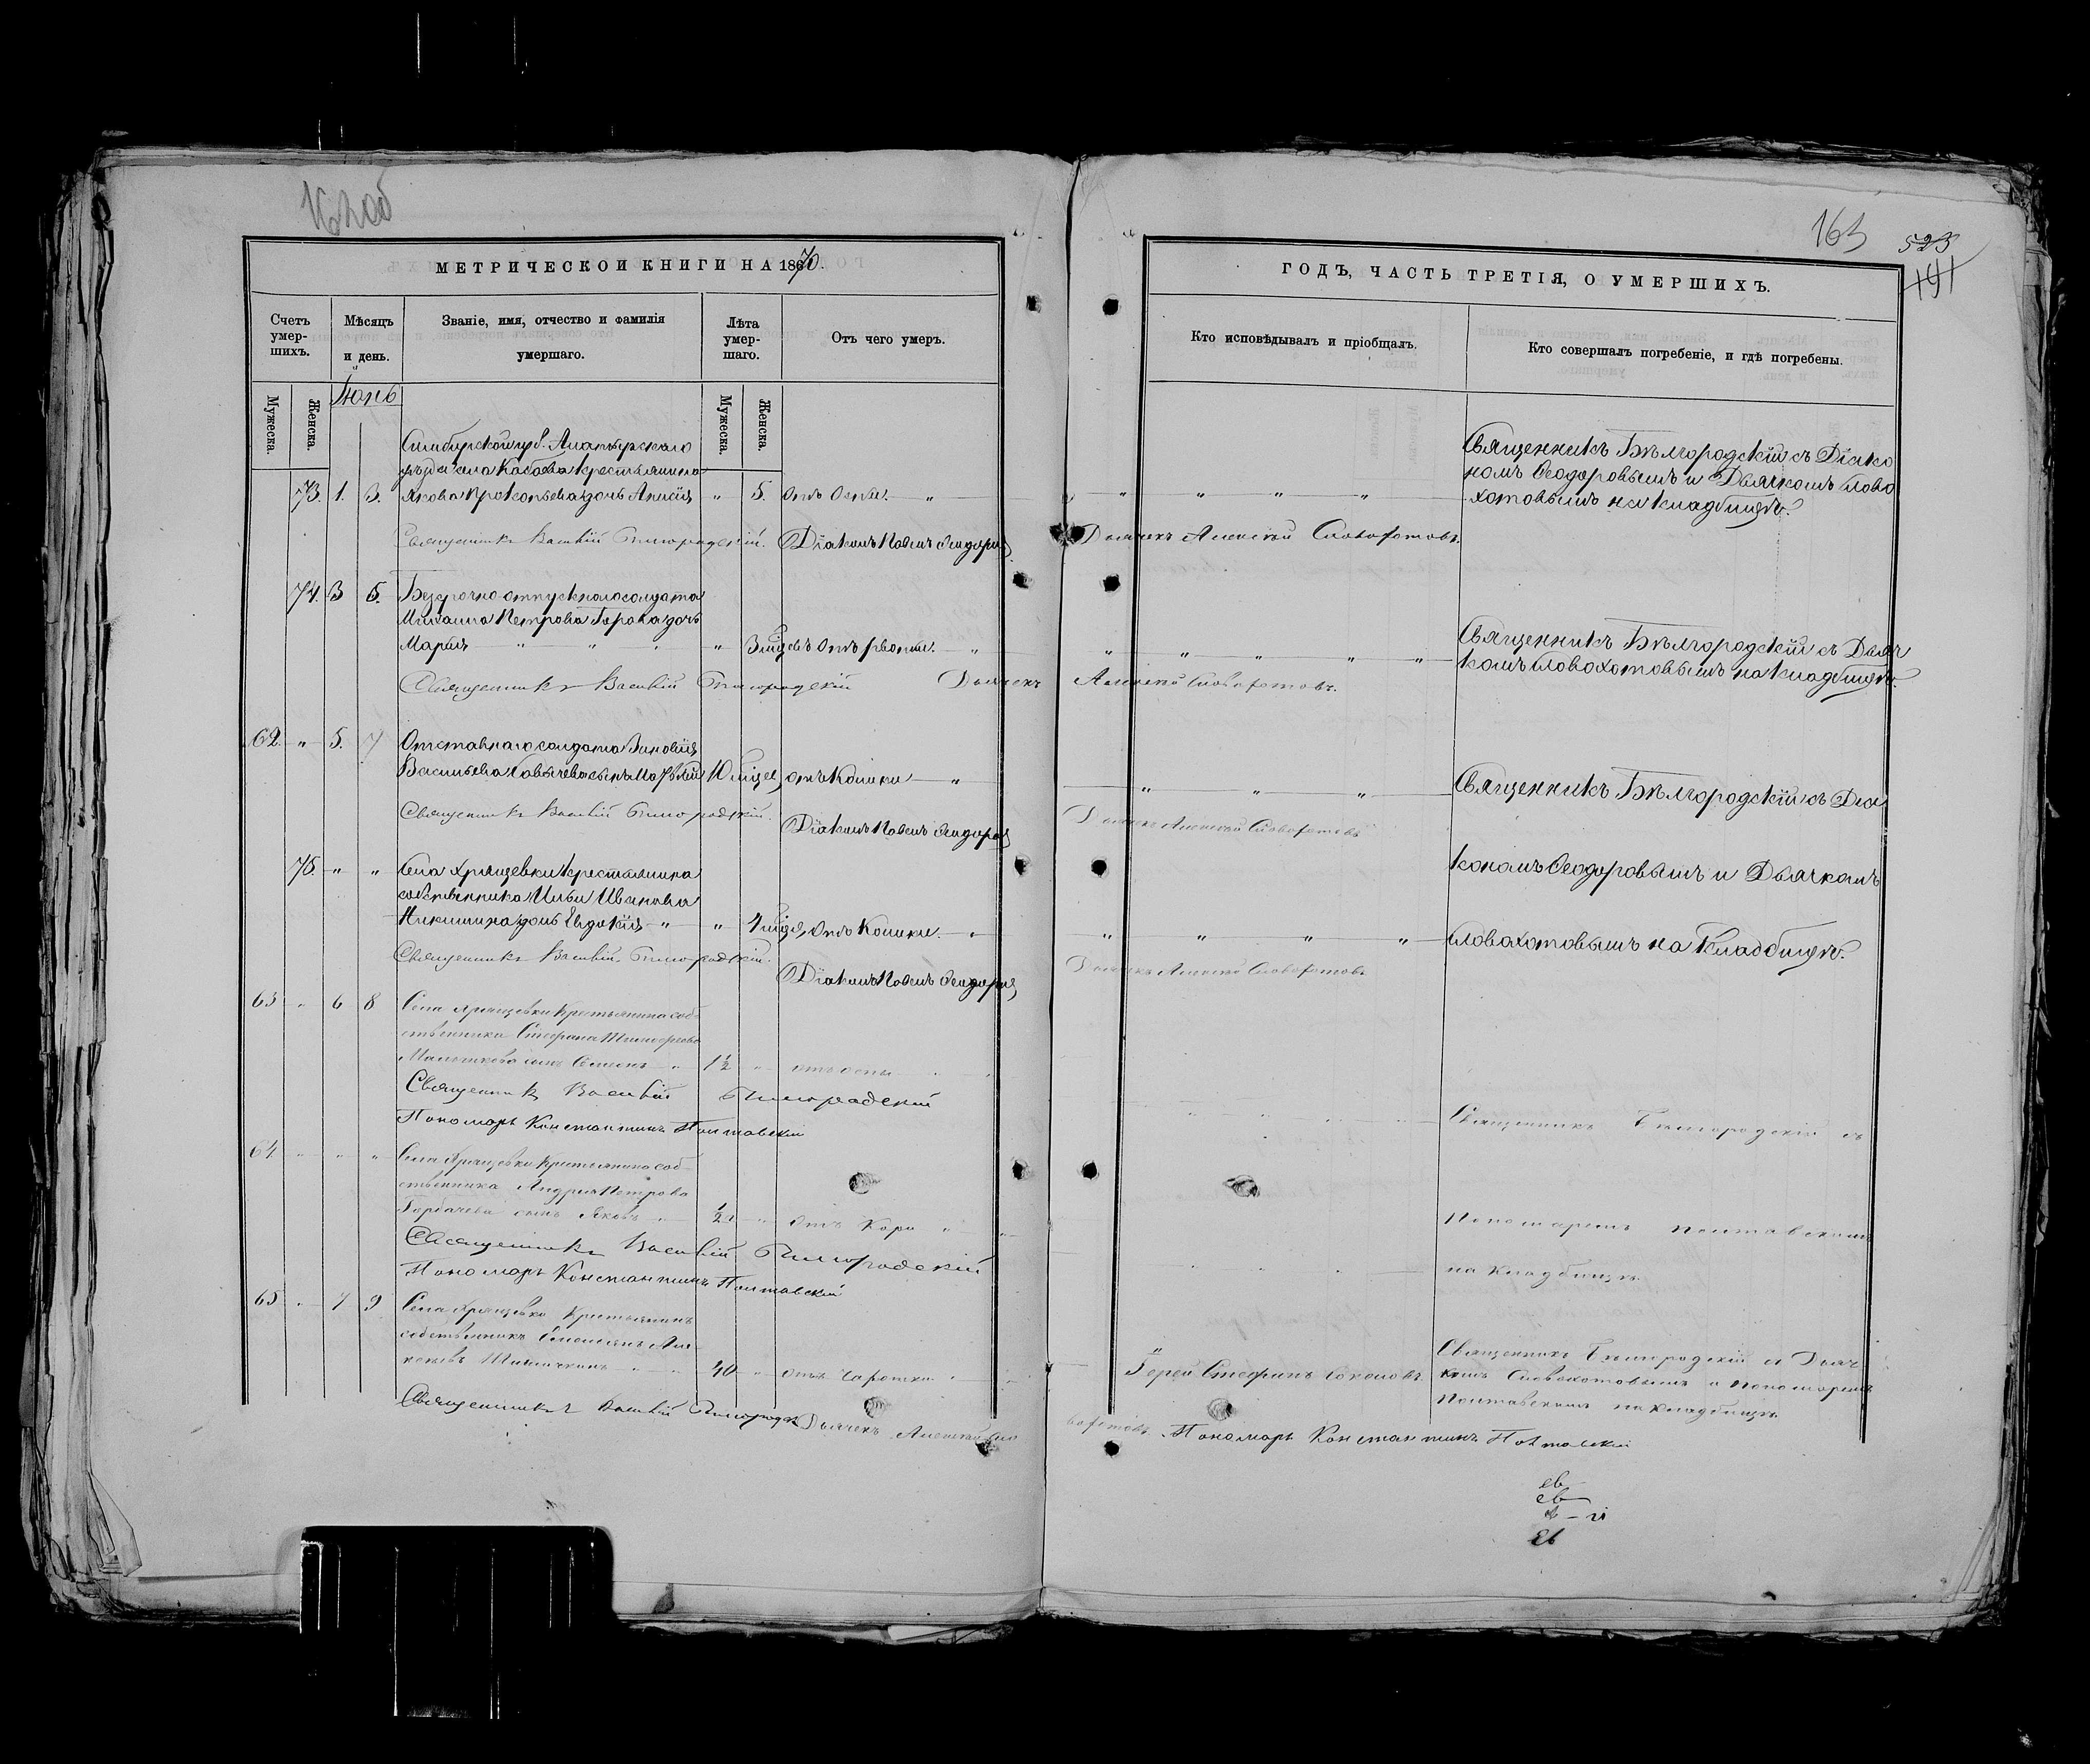 162об
МЕТРИЧЕСКОЙ КНИГИ НА 1870.
Счетъ умер-шихъ.
Мѣсяцъ и день.
Званіе, имя, отчество и фамилія умершаго.
Лѣта умер-шаго.
Отъ чего умеръ.
Мужеска.
Женска.
Іюнь
Мужеска.
Женска.
Симбирской губ. Алатырскаго
уѣзда села Кабаева крестьянина
73. 1. 3. Якова Прокопьева дочь Анисія " 5. Отъ Оспы. "
Священникъ Василій Бѣлгородскій. Діаконъ Павелъ Ѳеодоровъ
74. 3 5. Безсрочно-отпускнаго солдата
Михаила Петрова дочь
Марія " " " " 3 мѣсяцевъ Отъ рвоты. "
Священникъ Василій Бѣлгородскій Дьячекъ
62. " 5. 7 Отставнаго солдата Зиновія
Васильева сынъ 10 мѣсяц. отъ Колики "
Священникъ Василій Бѣлгородскій.
Діаконъ Павелъ Ѳеодоровъ
75. " " Села Хрящевки крестьянина
собственника Ильи Иванова
Никишина дочь Евдокія " " 4 мѣсяц. Отъ Колики. "
Священникъ Василій Бѣлгородскій.
Діаконъ Павелъ Ѳеодоровъ
63 " 6 8 Села Хрящевки крестьянина соб-
ственника Стефана Тимофеева
сынъ Симеонъ " 1½ " отъ оспы "
Священникъ Василій Бѣлгородскій
Пономарь Константинъ Полтавскій
64 " " " Села Хрящевки крестьянина соб-
ственника Андрея Петрова
Горбачева сынъ Яковъ " ½ " Отъ Кори "
Священникъ Василій Бѣлгородскій
Пономарь Константинъ Полтавскій
65 " 7 9 Села Хрящевки Крестьянинъ
собственникъ
40 " Отъ Чахотки "
Священникъ Василій Бѣлгородск Дьячекъ Алексѣй Сло
163
523
191
ГОДЪ, ЧАСТЬ ТРЕТІЯ, О УМЕРШИХЪ.
Кто исповѣдывалъ и пріобщалъ.
Кто совершалъ погребеніе, и гдѣ погребены.
Священникъ Бѣлгородскій съ Діако
номъ Ѳеодоровымъ и Дьячкомъ Слово
хотовымъ на кладбищѣ.
Дьячекъ Алексѣй Словохотовъ.
Священникъ Бѣлгородскій съ Дьяч
комъ Словохотовымъ на кладбищѣ.
Алексѣй Словохотовъ.
Священникъ Бѣлгородскій съ Діа
Дьячекъ Алексѣй Словохотовъ
кономъ Ѳеодоровымъ и Дьячкомъ
Словохотовымъ на Кладбищѣ.
Дьячекъ Алексѣй Словохотовъ
Священникъ Бѣлгородскій съ
Пономаремъ Полтавскимъ
на кладбищѣ.
Іерей Стефанъ Соколовъ
Священникъ Бѣлгородскій съ Дьяч
комъ Словохотовымъ и Пономаремъ
Полтавскимъ на кладбищѣ
вохотовъ. Пономарь Константинъ Полтавскій